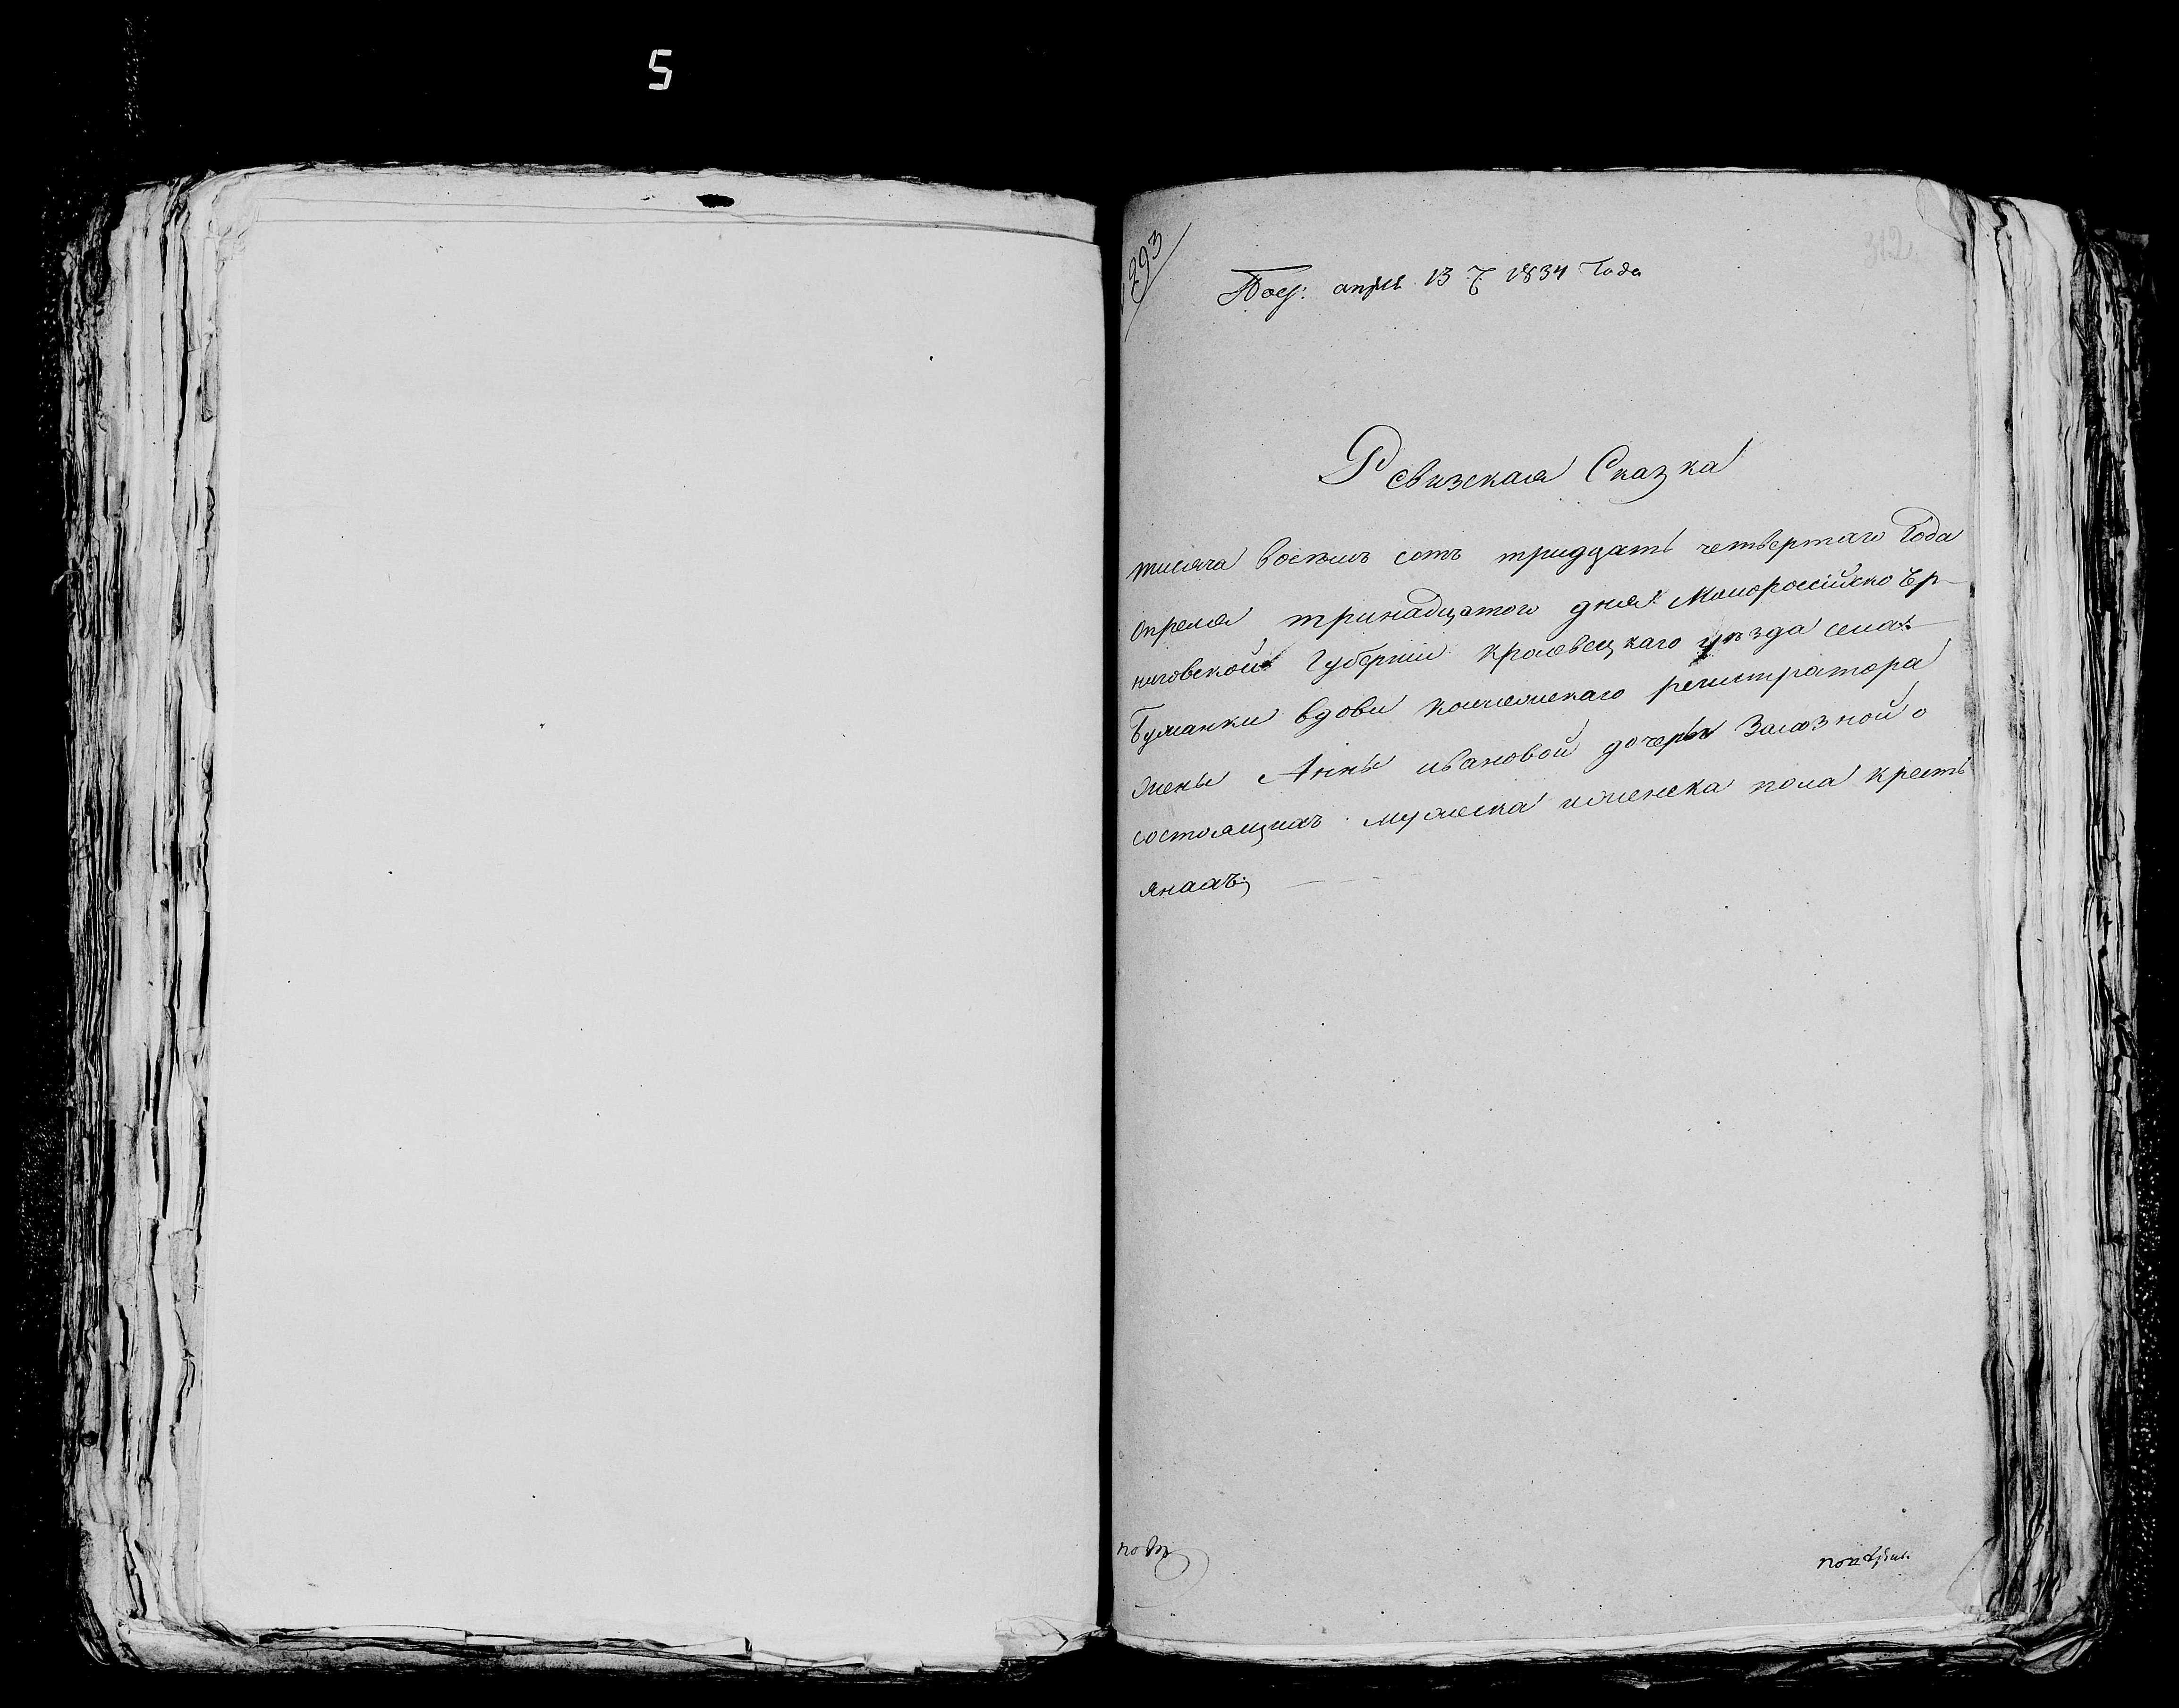 5
293
312
Пол: апрля 13 1834 Года
Ревизская Сказка
тисяча восемъ сотъ тридцать четвертаго Года
опреля тринадцатого дня Малоросійско Чр-
ниговской Губерніи кролевецкаго уезда села
Тулиголви вдови колежскаго регистратора
жены Анны ивановой дочеры Залозной о
состоящихъ мужеска иженска пола кресть
янахъ;